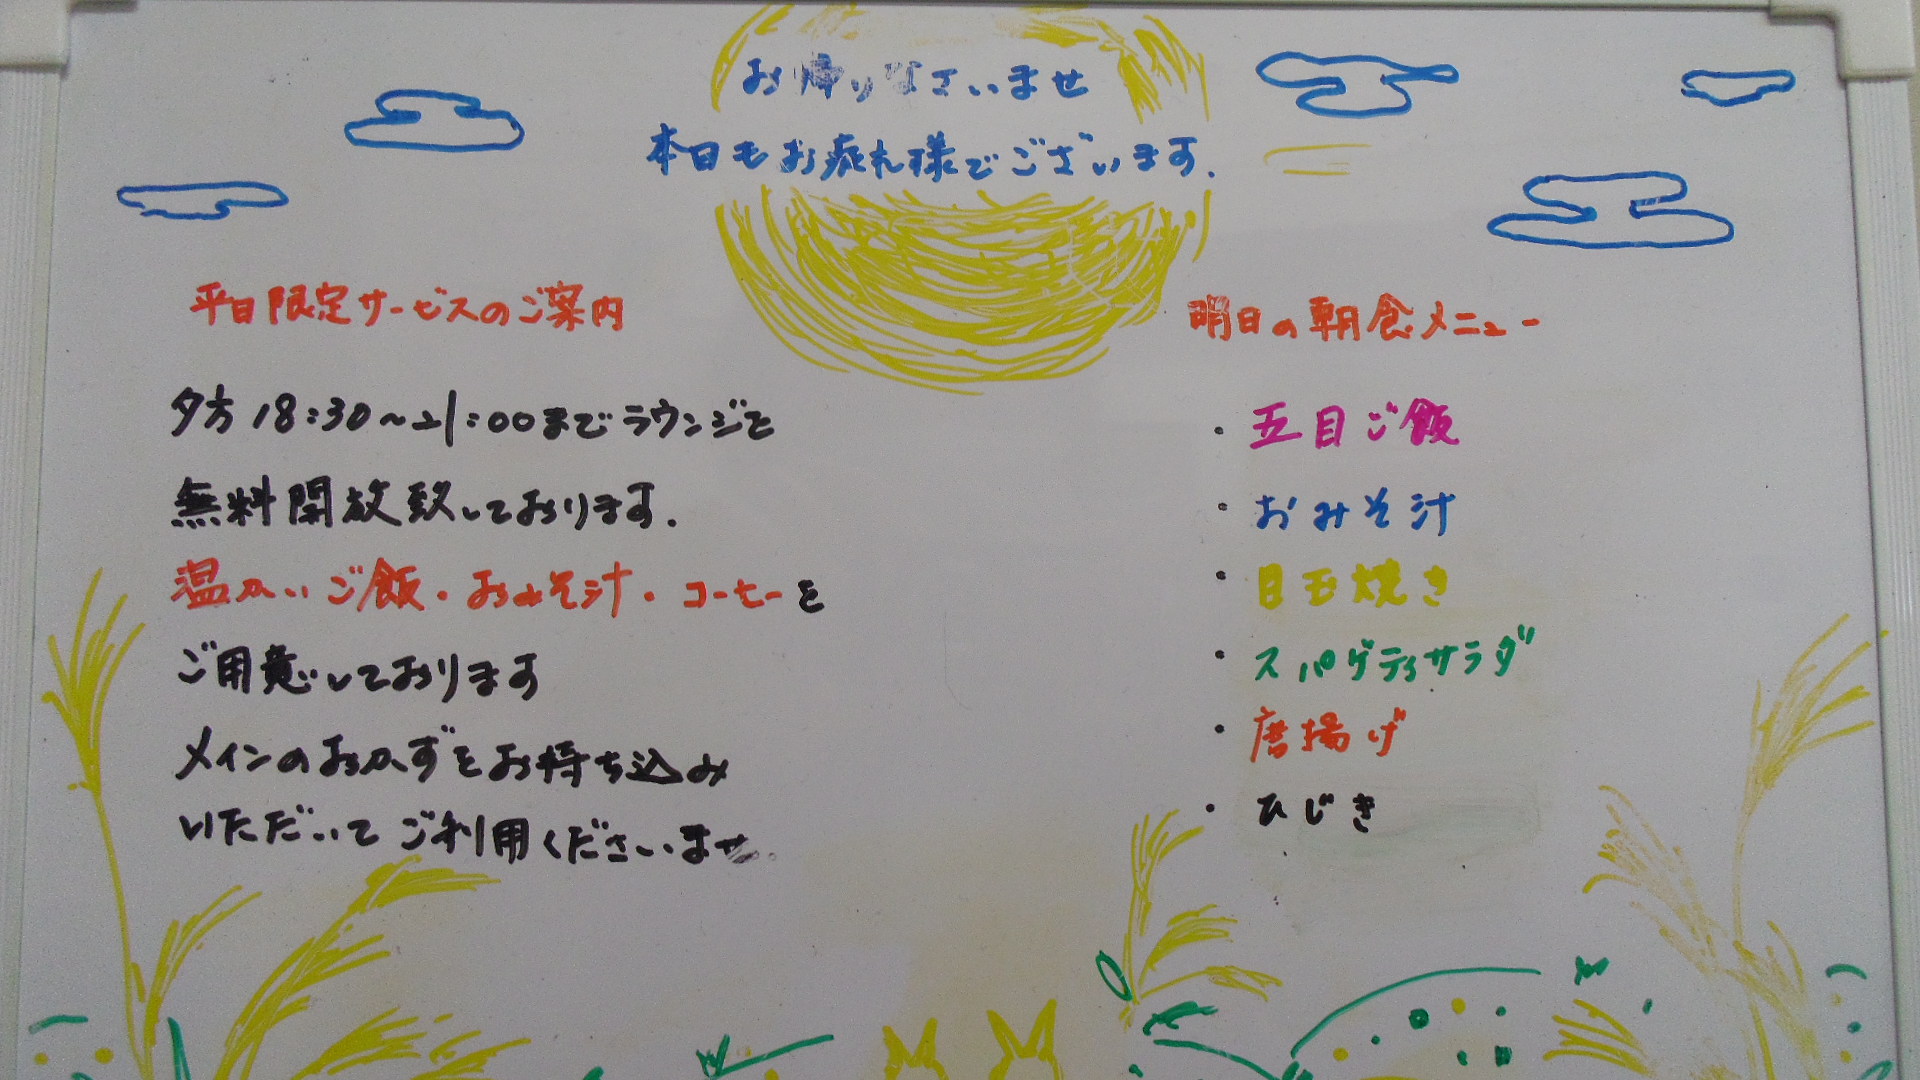 お帰りなさいませ
本日もお疲れ様でございます.
平日限定サービスのご案内
夕方18:30~21:00までラウンジを
無料開放致しております.
温かいご飯・おみそ汁・コーヒーを
ご用意しております
メインのおかずをお持ち込み
いただいてご利用くださいませ.
明日の朝食メニュー
・五目ご飯
・おみそ汁
・目玉焼き
・スパゲティサラダ
・唐揚げ
・ひじき